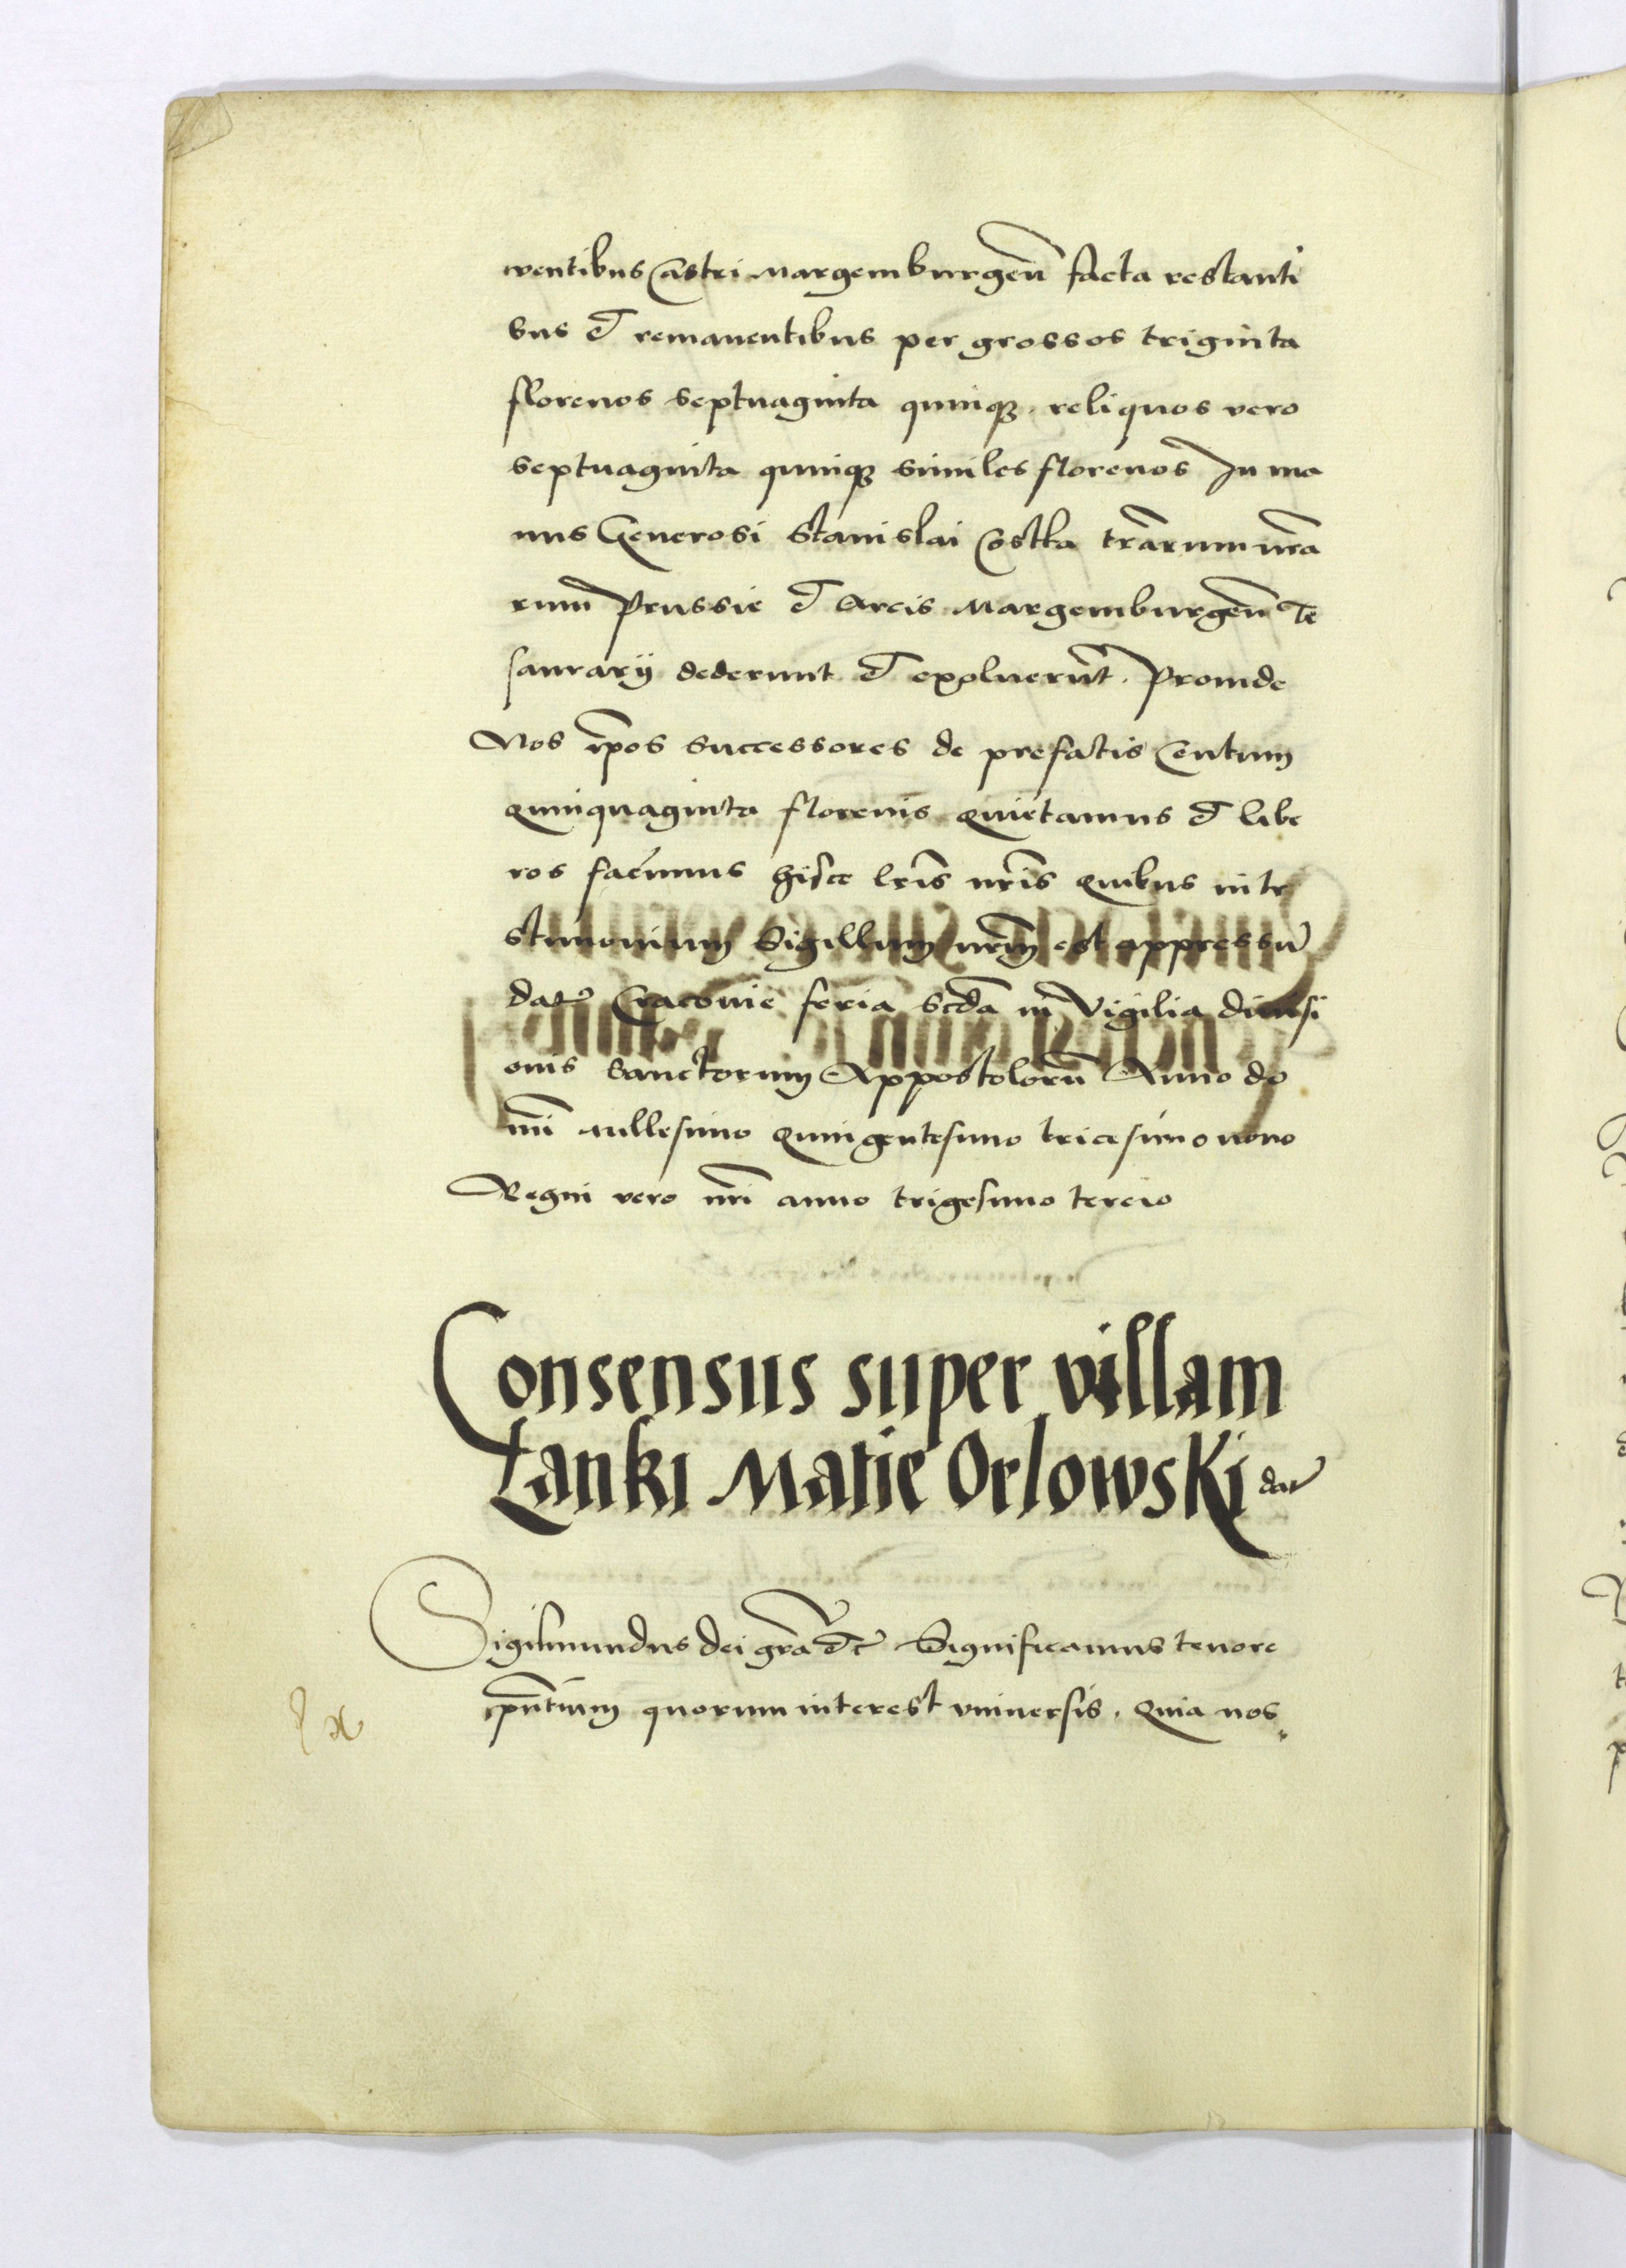 ventibus Castri Margemburgen̄ facta restanti
bus et remanentibus per grossos triginta
florenos septuaginta quinqȝ. reliquos vero
septuaginta quinqȝ similes florenos In ma
nus Generosi Stanislai Costka tr̄arum nr̄a
rum Prussie et Arcis Margemburgen̄ Te
saurarij dederunt et exoluerūt. Proinde
Nos ip̄os successores de prefatis Centum
Quinquaginta florenis Quietamus et libe
ros facimus hisce lr̄is nr̄is Quibus in te
stimonium Sigillum nr̄m est appressū
dat Cracovie feria Scd̄a in Vigilia divisi
onis Sanctorum Appostolorū Anno do
mī Millesimo Quingentesimo tricesimo nono
Regni vero nr̄i anno trigesimo tercio
Consensus super villam
Lanki Matie Orlowski dat
Sigismundus dei gr̄a etc Significamus tenore
pn̄tium quorum interest vniversis. Quia nos